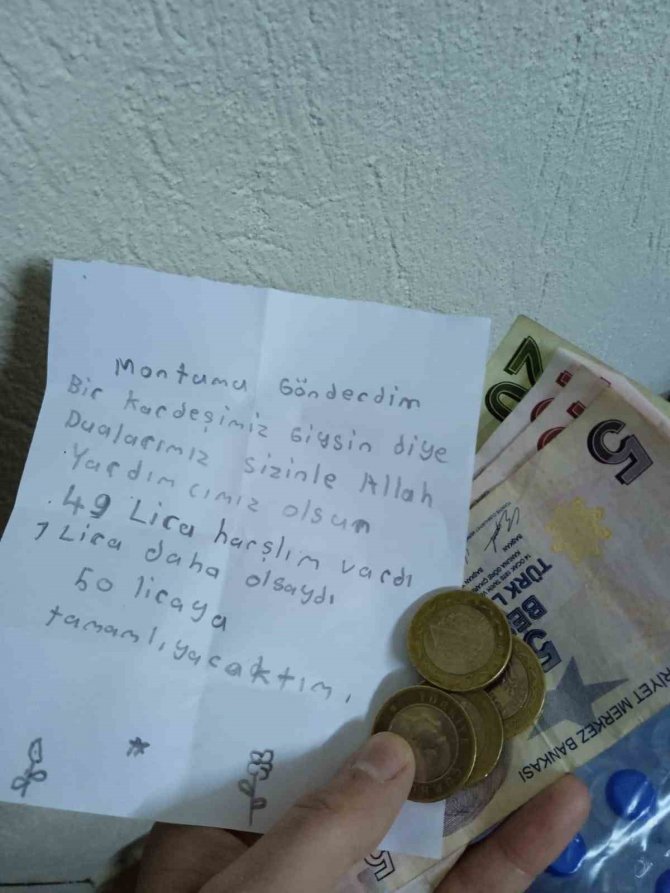 Montumu Gönderdim
Bir kardeşimiz Giysin diye
Dualarımız sizinle Allah
Yardım cımız olsun
49 Lira harşlım vardı
1 Lira daha olsaydı
50 liraya
tamamlıyacaktım.
20
5
BAŞKAN
TÜRK L
BE
5
RİYET MERKEZ BANKASI
5